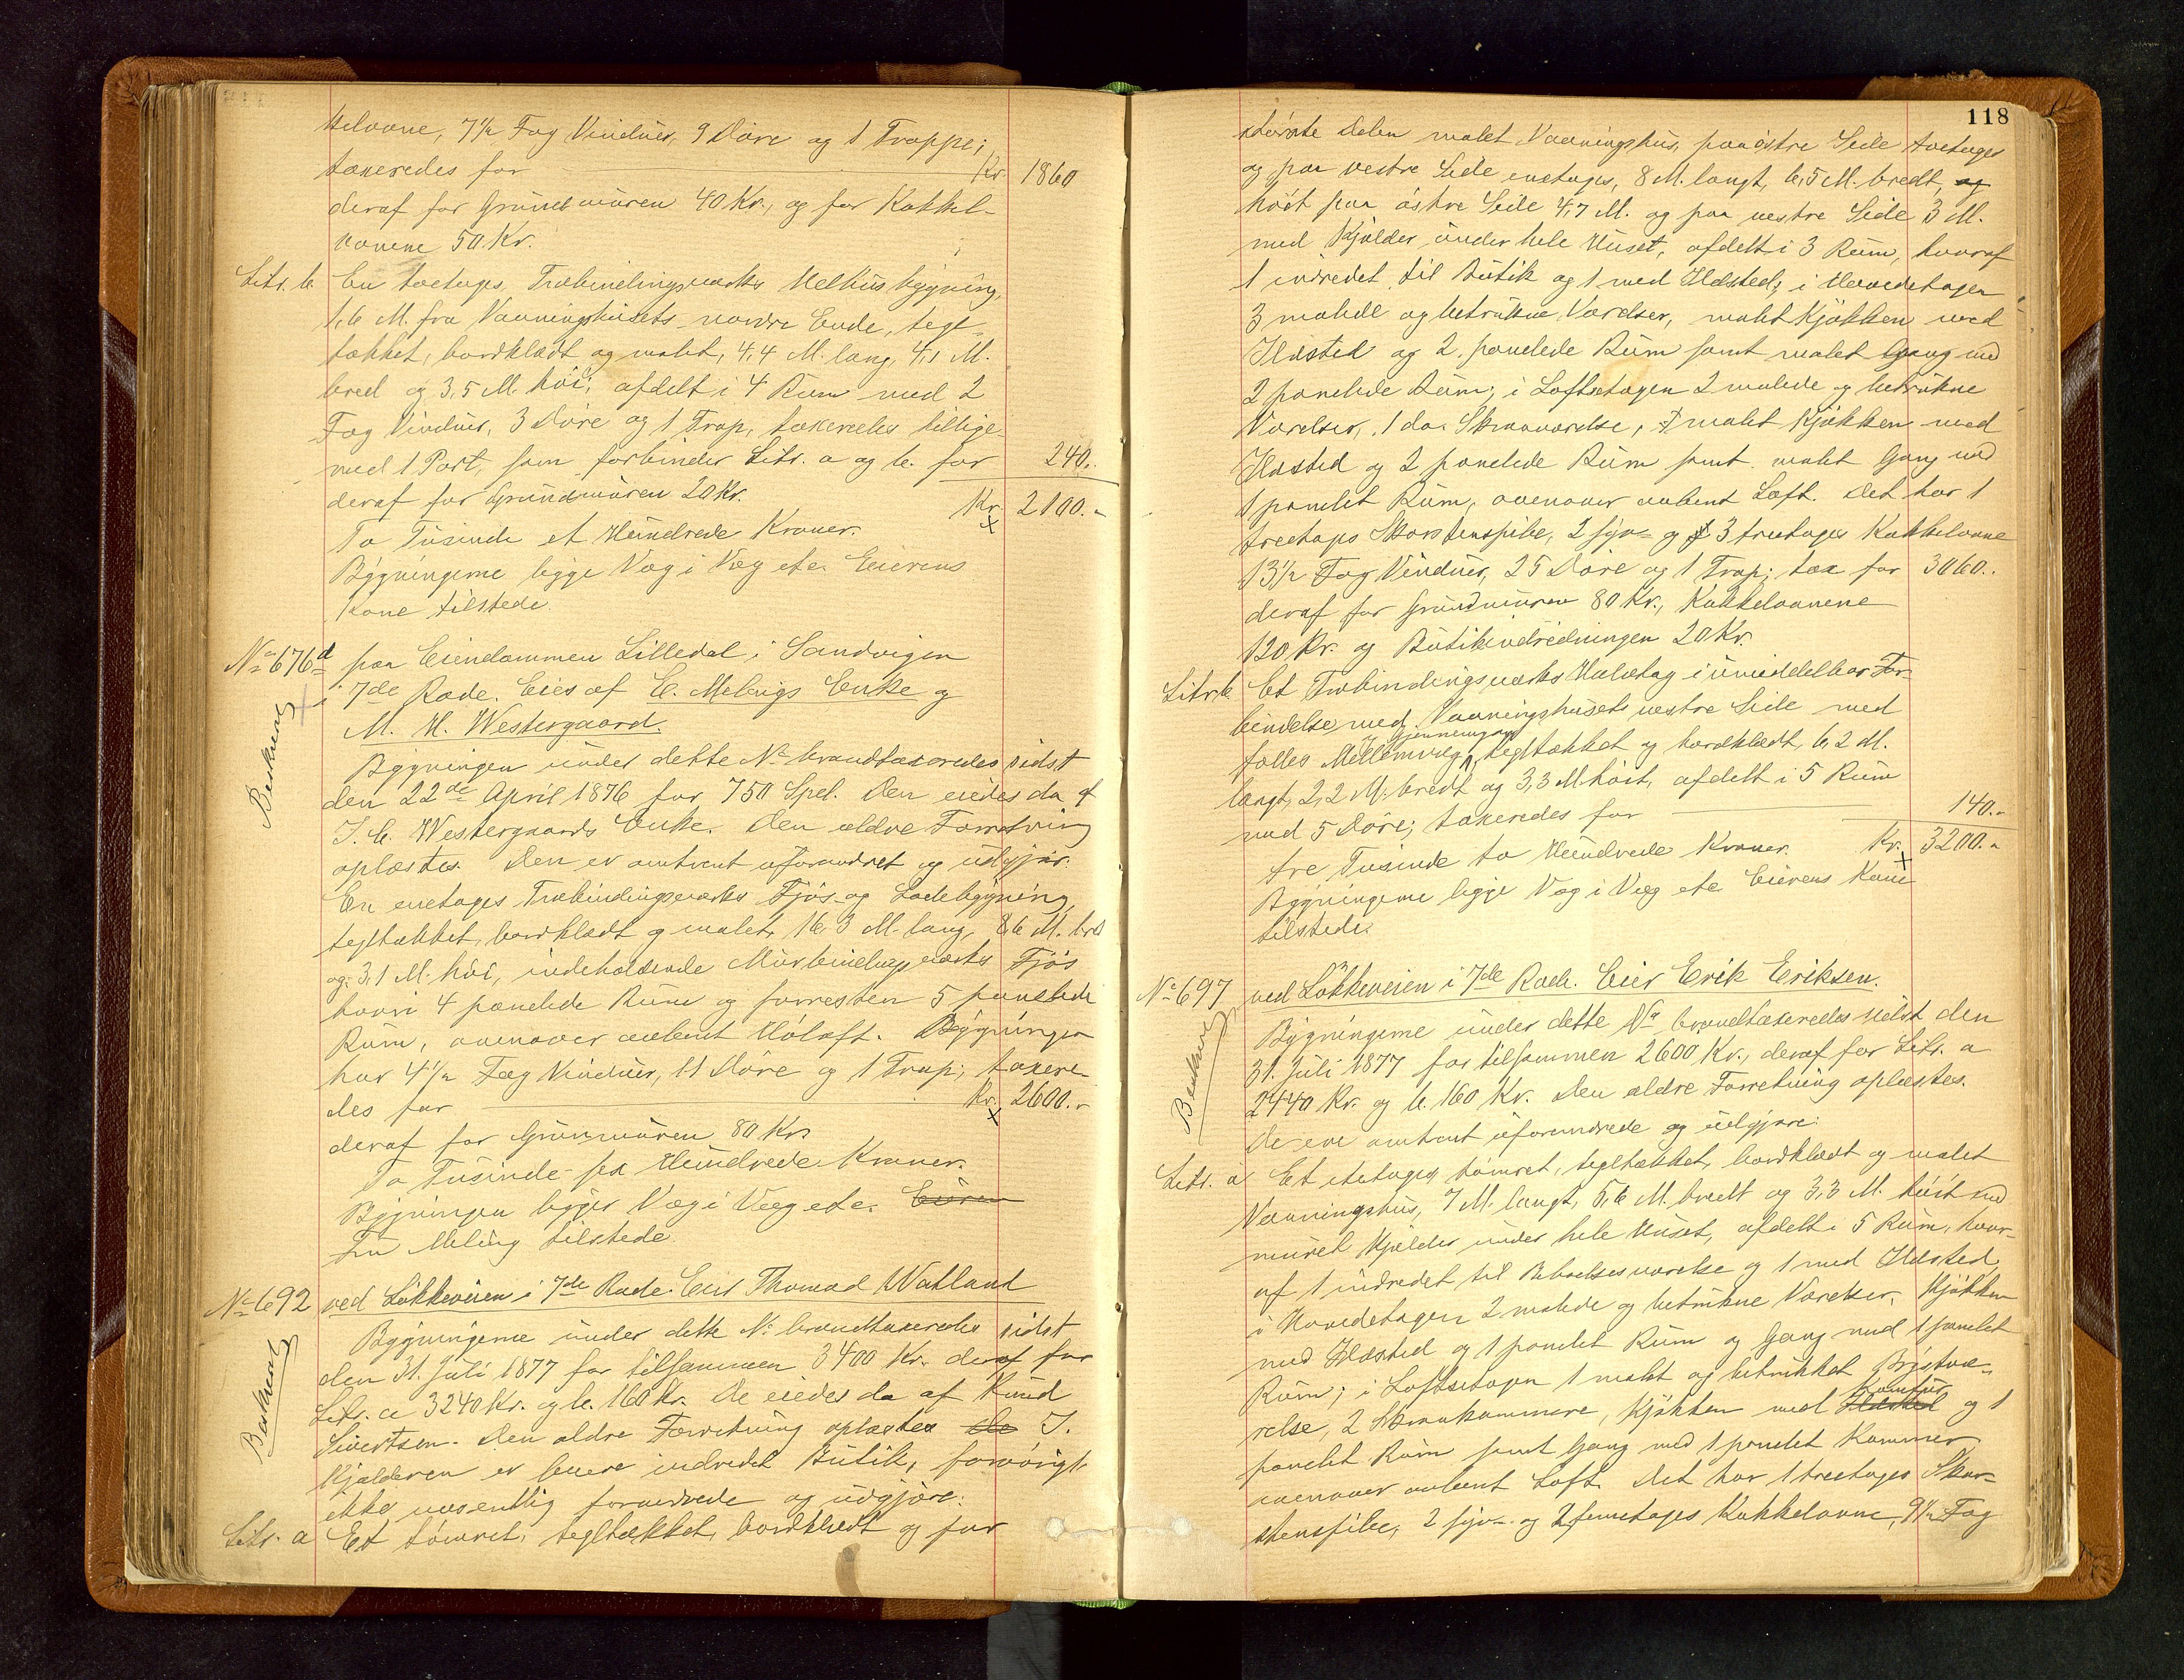 kelovne, 7½ Fag Vinduer, 9 Döre og 1 Trappe;
taxeredes for Kr. 1860
deraf for Grundmuren 40 Kr., og for Kakkel-
ovnene 50 Kr.
Litr. b. En toetages, Træbindingsværks Melhusbygning,
1,6 M. fra Vaaningshusets nordre Ende, tegl-
takket, bordklædt og malet, 4,4 M. lang, 4,1 M.
bred og 3,5 M. höi; afdelt i 4 Rum med 2
Fag Vinduer, 3 Döre og 1 Trap, taxeredes tillige-
med 1 Port, som forbinder Litr. a og b. for 240.-
deraf for Grundmuren 20 Kr. Kr. 2100.-
To Tusinde et Hundrede Kroner.
Bygningerne ligge Væg i Væg etc. Eierens
Kone tilstede.
No 676d paa Eiendommen Lilledal i Sandvigen
i 7de Rode. Eies af E. Melings Enke og
M. H. Westergaard.
Beskrevet
Bygningen under dette No brandtaxeredes sidst
den 22de April 1876 for 750 Spd. Den eiedes da af
I. C. Westergaards Enke. Den ældre Forretning
oplæstes. Den er omtrent uforandret og udgjör:
En enetages Træbindingsværks Fjös- og Ladebygning,
tegltækket, bordklædt og malet, 16,3 M. lang, 8,6 M. bred
og 3,1 M. höi, indeholdende Murbindingsværks Fjös
hvori 4 panelede Rum og forresten 5 panelede
Rum, ovenover aabent Höloft. Bygningen
har 4½ Fag Vinduer, 11 Döre og 1 Trap; taxere-
des for Kr. 2600.-
deraf for Grunmuren 80 Kr.
To Tusinde sex Hundrede Kroner.
Bygningen ligger Væg i Væg etc. Eieren
Fru Meling tilstede.
No 692 ved Lökkeveien i 7de Rode. Eier Thomas Watland
Beskrevet
Bygningerne under dette No brandtaxeredes sidst
den 31. Juli 1877 for tilsammen 3400 Kr. deraf for
Litr. a 3240 Kr. og b. 160 Kr. De eiedes da af Knud
Sivertsen. Den ældre Forretning oplæstes de I.
Kjælderen er bleven indredet Butik, forövrigt
ikke væsentlig forandrede og udgjöre:
Litr. a Et tömret, tegltækket, bordklædt og for
118
störste Delen malet Vaaningshus, paa östre Side toetages
og paa vestre Side enetages, 8 M. langt, 6,5 M. bredt, og
höit paa östre Side 4,7 M. og paa vestre Side 3 M.
med Kjælder under hele Huset, afdelt i 3 Rum, hvoraf
1 indredet til Butik og 1 med Ildsted; i Hovedetagen
3 malede og betrukne Værelser, malet Kjökken med
Ildsted og 2 panelede Rum samt malet Gang med
2 panelede Rum; i Loftsetagen 2 malede og betrukne
Værelser, 1 do. Skraaværelse, malet Kjökken med
Ildsted og 2 panelede Rum samt malet Gang med
1 panelet Rum, ovenover aabent Loft. Det har 1
treetages Skorstenspibe, 2 syv- og 3 treetages Kakkelovne
13½ Fag Vinduer, 25 Döre og 1 Trap; tax for 3060.-
deraf for Grundmuren 80 Kr., Kakkelovnene
120 Kr. og Butikindredningen 20 Kr.
Litr. b. Et Træbindingsværks Halvtag i umiddelbar For-
bindelse med Vaaningshusets vestre Side med
fælles Mellemvæg Gjennemgang, tegltækket og bordklædt, 6,2 M.
langt, 2,2 M. bredt og 3,3 M. höit, afdelt i 5 Rum
med 5 Döre; taxeredes for 140.-
tre Tusinde to Hundrede Kroner. Kr. 3200.-
Bygningerne ligge Væg i Væg etc. Eierens Kone
tilstede.
No 697 ved Lökkeveien i 7de Rode. Eier Erik Eriksen.
Beskrevet
Bygningerne under dette No brandtaxeredes sidst den
31. Juli 1877 for tilsammen 2600 Kr., deraf for Litr. a
2440 Kr. og b. 160 Kr. Den ældre Forretning oplæstes.
De ere omtrent uforandrede og udgjöre:
Litr. a Et etetages tömret, tegltækket, bordklædt og malet
Vaaningshus, 7 M. langt, 5,6 M. bredt og 3,3 M. höit med
muret Kjelder under hele Huset, afdelt i 5 Rum, hvor-
af 1 indredet til Beboelsesværelse og 1 med Ildsted,
i Hovedetagen 2 malede og betrukne Værelser, Kjökken
med Ildsted og 1 panelet Rum og Gang med 1 panelet
Rum; i Loftsetagen 1 malet og betrukket Brystvæ-
relse, 2 Skraakammere, Kjökken med Ildsted Komfur og 1
panelet Rum samt Gang med 1 panelet Kammer
ovenover aabent Loft. Det har 1 treetages Skor-
stenspibe, 2 syv- og 2 femetages Kakkelovne, 9½ Fag